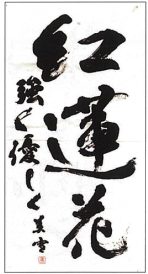 紅蓮花
強く優しく